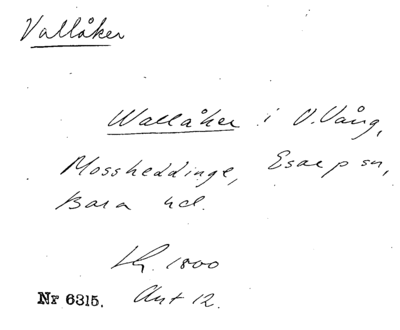 Vallåker
Wallåker i V.Vång,
Mossheddinge, Esarp sn,
Bara hd.
1800
Nr 6315. Akt 12.